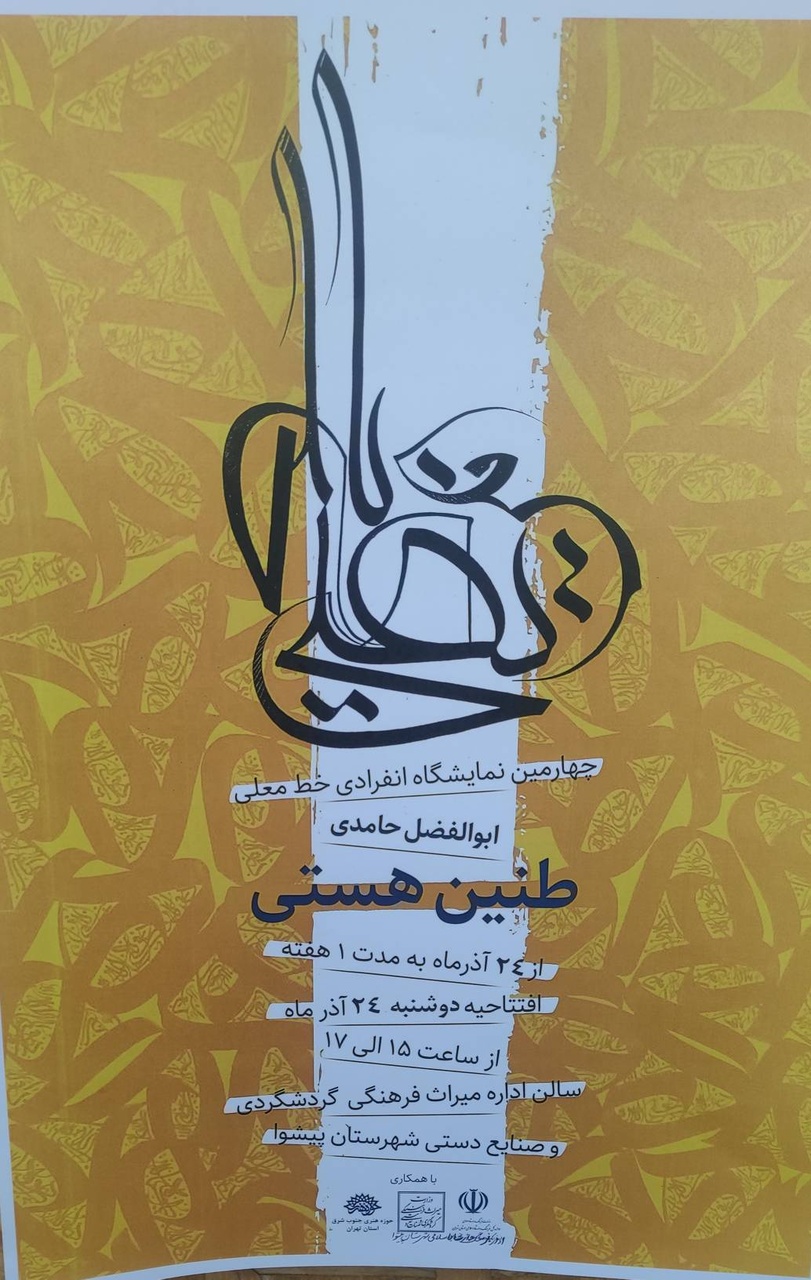 چهارمین نمایشگاه انفرادی خط معلی
ابوالفضل حامدی
طنین هستی
از ۲۴ آذرماه به مدت ۱ هفته
افتتاحیه دوشنبه ۲۴ آذر ماه
از ساعت ۱۵ الی ۱۷
سالن اداره میراث فرهنگی گردشگری
و صنایع دستی شهرستان پیشوا
با همکاری
حوزه هنری جنوب شرق
استان تهران